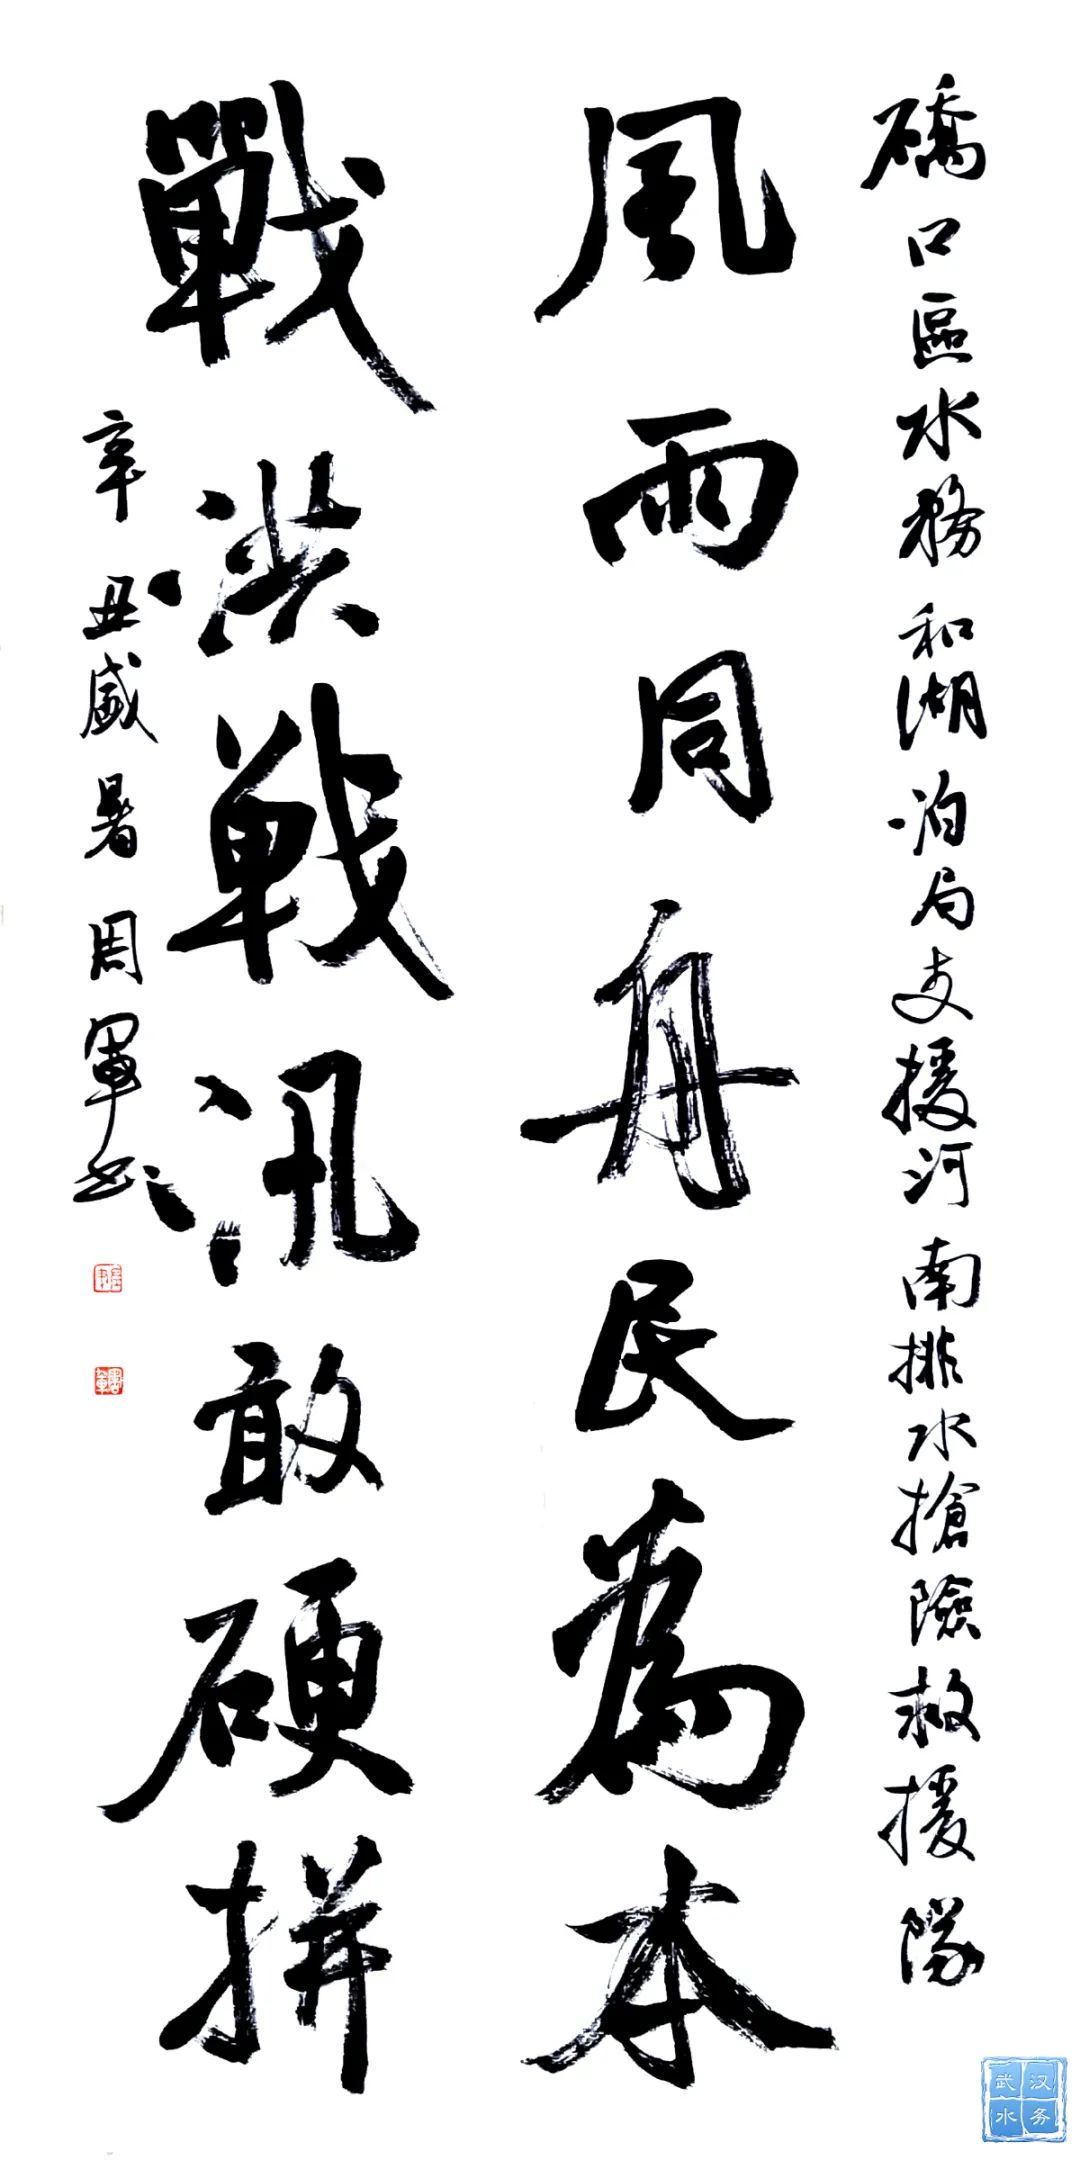 硚口區水務和湖泊局支援河南排水搶險救援隊
風雨同舟民為本
戰洪戰汛敢硬拼
辛丑盛暑周軍書
武汉
水务